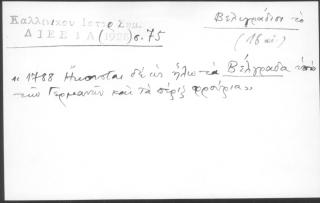 Καλλινίκου Ιστορ. Σημ.
ΔΙΕΕΙΑ (1921) σ. 75
Βελιγράδιον το
(18 αι.)
"1788 Ηκουσται δε ως ηλω τα Βελγραδα υπο
των Γερμανων και τα περιξ φρουρια"